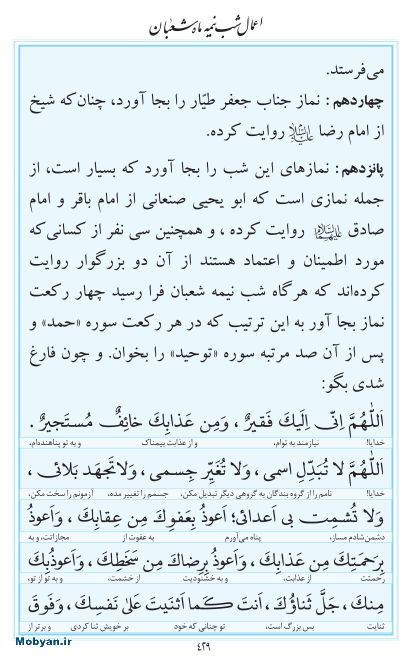 اعمال شب نیمه ماه شعبان
می‌فرستد.
چهاردهم: نماز جناب جعفر طیّار را بجا آورد، چنان‌که شیخ
از امام رضا علیه السلام روایت کرده.
پانزدهم: نمازهای این شب را بجا آورد که بسیار است، از
جمله نمازی است که ابو یحیی صنعانی از امام باقر و امام
صادق علیهما السلام روایت کرده ، و همچنین سی نفر از کسانی‌که
مورد اطمینان و اعتماد هستند از آن دو بزرگوار روایت
کرده‌اند که هرگاه شب نیمه شعبان فرا رسید چهار رکعت
نماز بجا آور به این ترتیب که در هر رکعت سوره «حمد» و
پس از آن صد مرتبه سوره «توحید» را بخوان. و چون فارغ
شدی بگو:
اَللّٰهُمَّ اِنّی اِلَیكَ فَقیرٌ ، وَمِن عَذابِكَ خائِفٌ مُستَجیرٌ .
خدایا! نیازمند به توام، و از عذابت بیمناک و به تو پناهنده‌ام،
اَللّٰهُمَّ لا تُبَدِّلِ اسمی ، وَلا تُغَیِّر جِسمی ، وَلاتَجهَد بَلائی ،
خدایا! نامم را از گروه بندگان به گروهی دیگر تبدیل مکن، جسمم را تغییر مده، آزمونم را سخت مکن،
وَلا تُشمِت بی اَعدائی؛ اَعوذُ بِعَفوِكَ مِن عِقابِكَ ، وَاَعوذُ
دشمن‌شادم مساز، پناه می‌آورم به عفوت از مجازاتت، و به
بِرَحمَتِكَ مِن عَذابِكَ ، وَاَعوذُ بِرِضاكَ مِن سَخَطِكَ ، وَاَعوذُبِكَ
رحمتت از عذابت، و به خشنودیت از خشمت، و به تو از تو،
مِنكَ ، جَلَّ ثَناؤُكَ ، اَنتَ كَما اَثنَیتَ عَلیٰ نَفسِكَ ، وَفَوقَ
ثنایت بس بزرگ است، تو چنانی که خود بر خویش ثنا کردی و برتر از
۴۲۹
Mobyan.ir